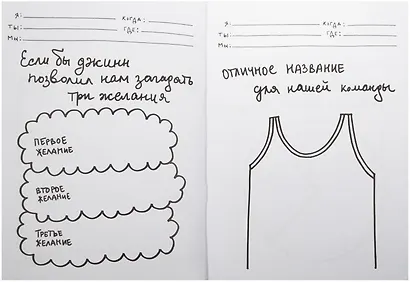 Я: КОГДА:
ТЫ: ГДЕ:
МЫ:
Если бы джинн
позволил нам загадать
три желания
ПЕРВОЕ
ЖЕЛАНИЕ
ВТОРОЕ
ЖЕЛАНИЕ
ТРЕТЬЕ
ЖЕЛАНИЕ
Я: КОГДА:
ТЫ: ГДЕ:
МЫ:
ОТЛИЧНОЕ НАЗВАНИЕ
для нашей команды